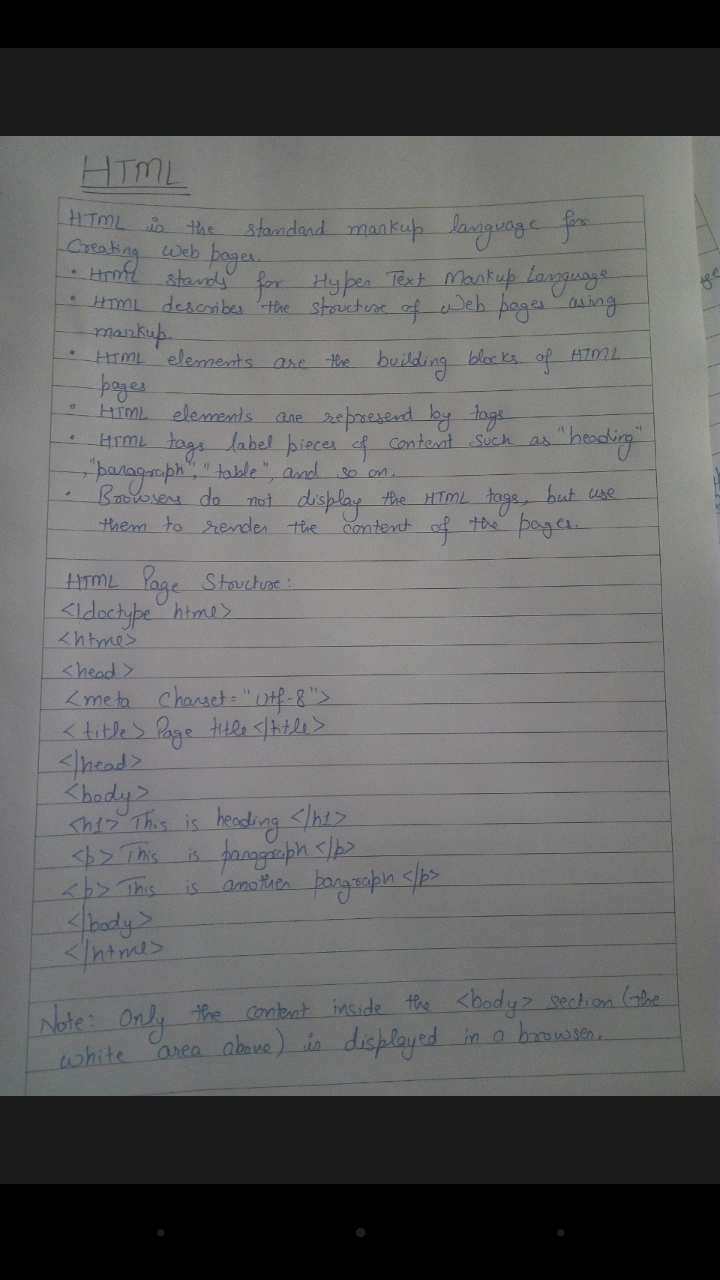 HTML
HTML is the standard markup language for
Creating web pages.
• HTML stands for Hyper Text Markup Language
• HTML describes the structure of Web pages using
markup.
• HTML elements are the building blocks of HTML
pages
• HTML elements are represend by tags
• HTML tags label pieces of content such as "heading"
,"paragraph", "table", and so on.
• Browsers do not display the HTML tags, but use
them to render the content of the pages.
HTML Page Structure:
<!doctype html>
<html>
<head>
<meta Charset="utf-8">
<title> Page title </title>
</head>
<body>
<h1> This is heading </h1>
<p> This is paragraph </p>
<p> This is another pargraph </p>
</body>
</html>
Note: Only the content inside the <body> section (the
white area above) is displayed in a browser.